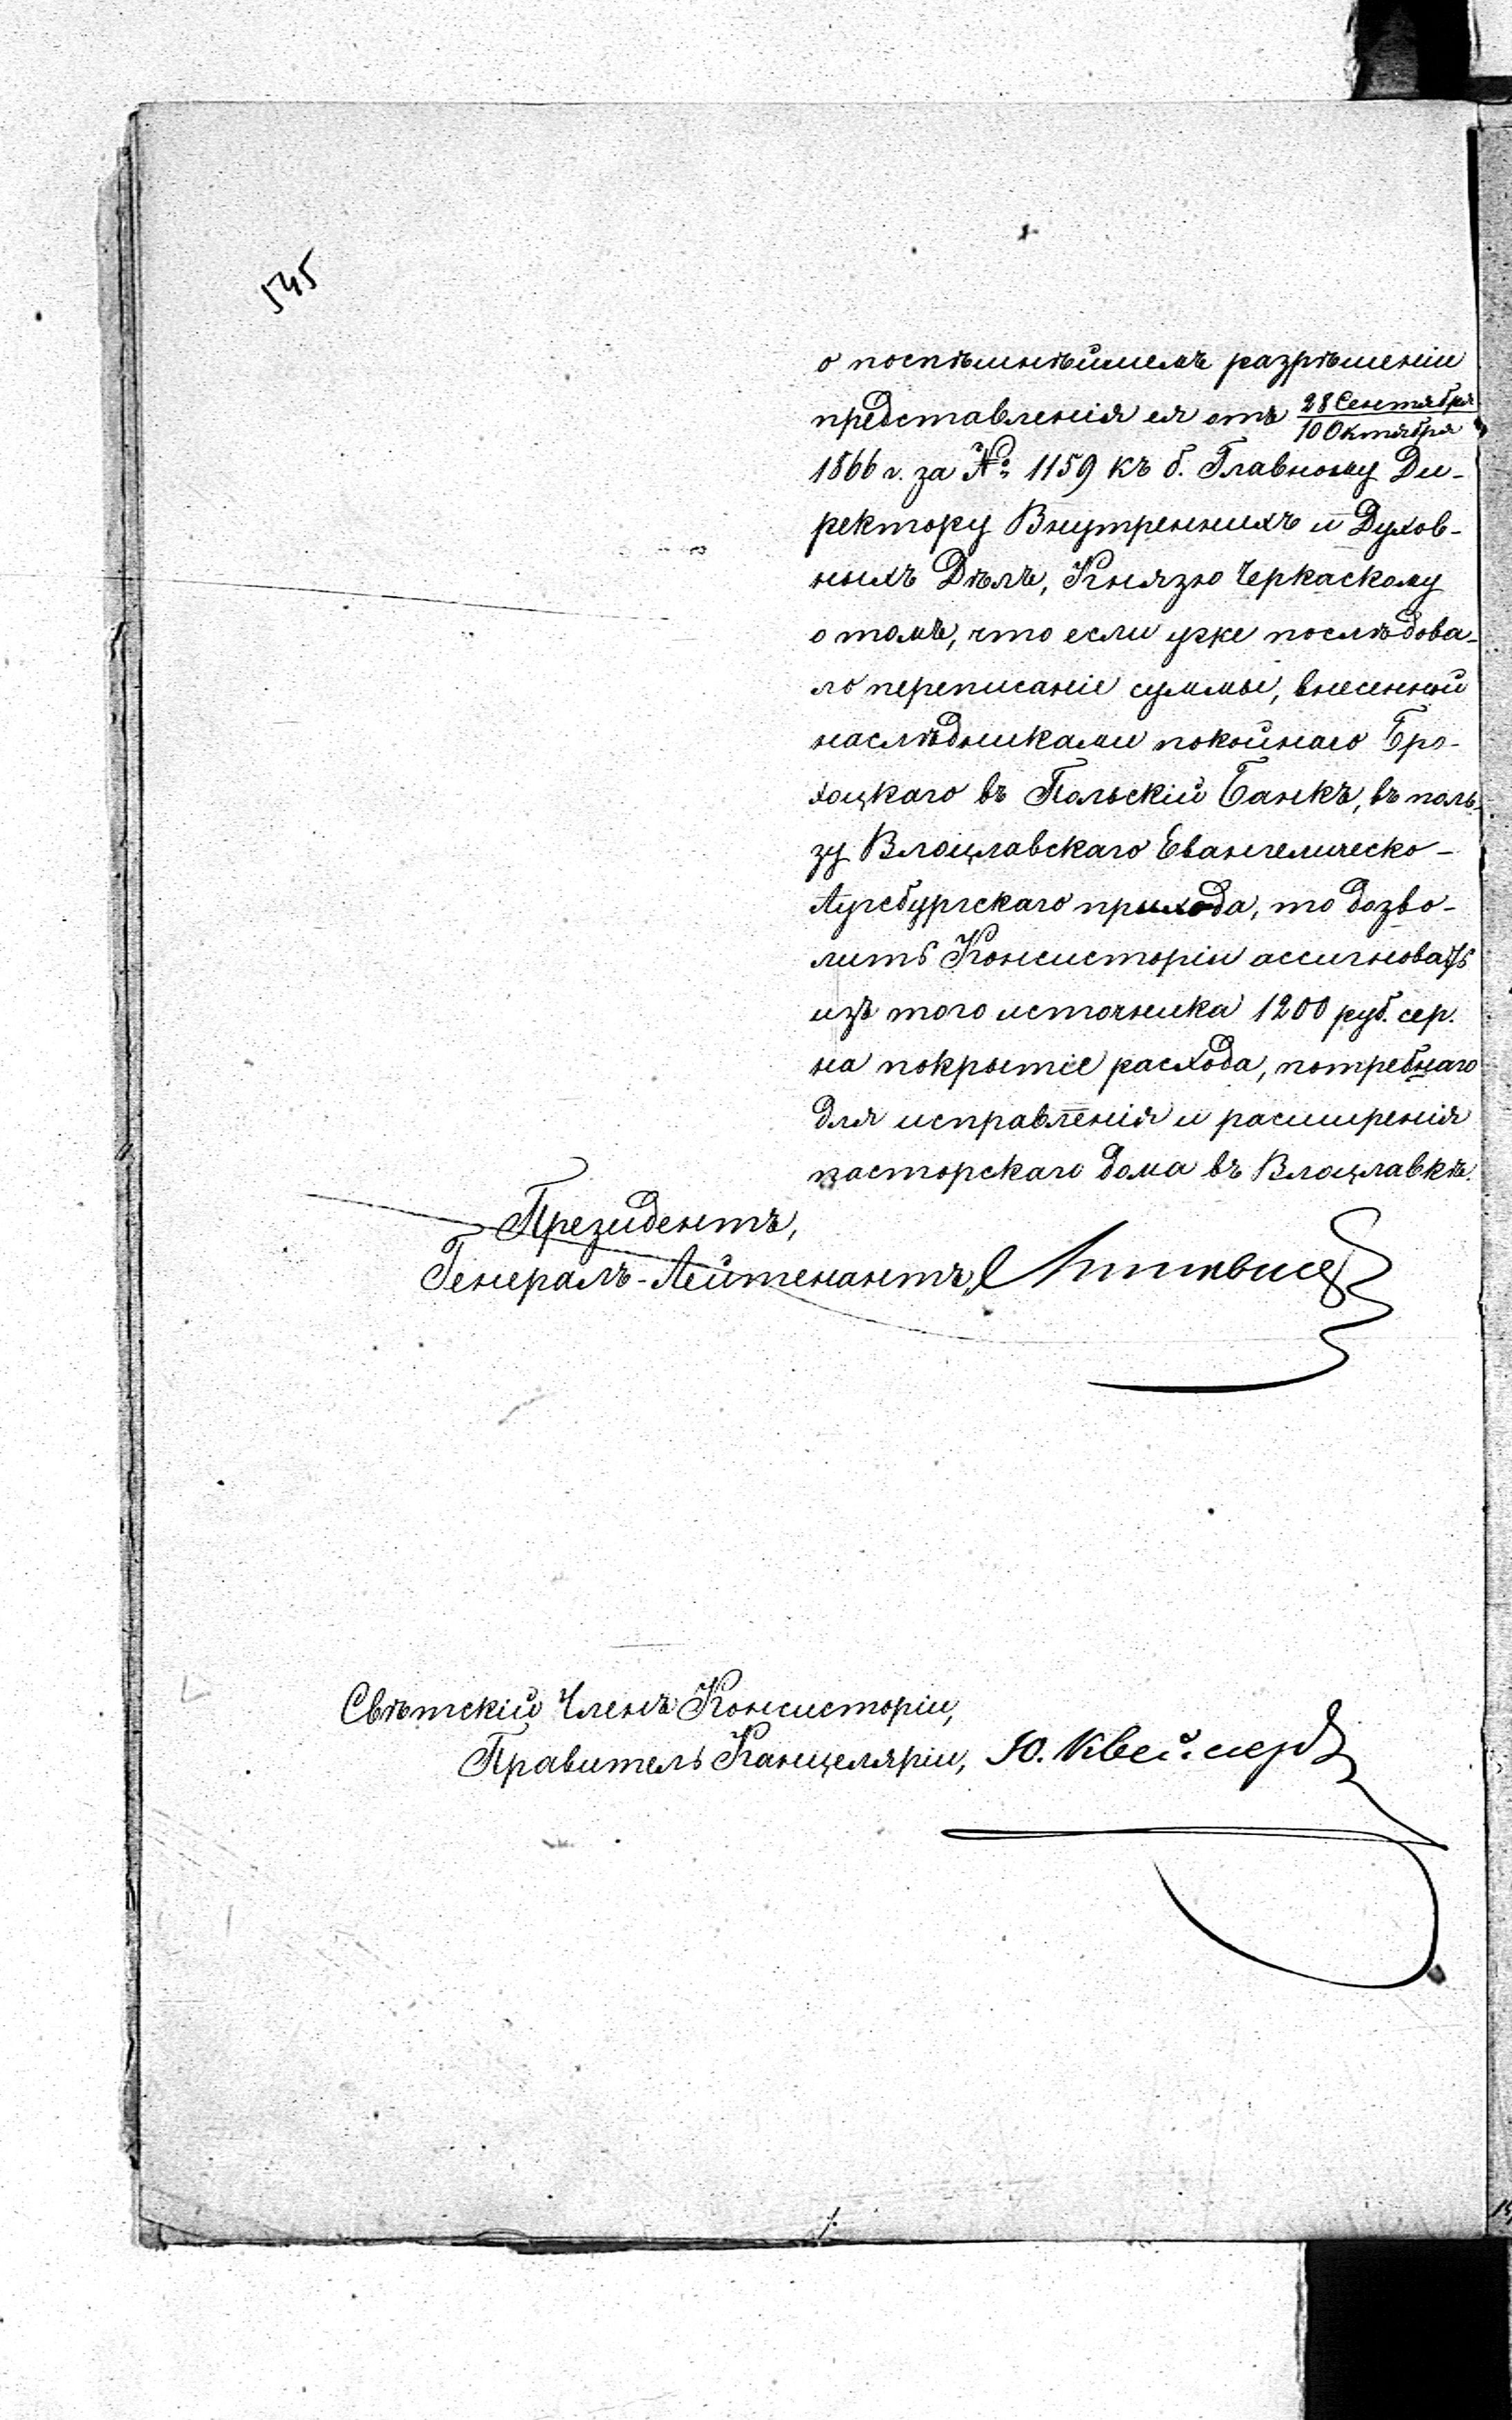 545
о поспѣшнѣйшемъ разрѣшеніи
представленія ея отъ 28 Сентября
10 Октября
1866 г. за № 1159 къ б. Главному Ди-
ректору Внутреннихъ и Духов-
ныхъ Дѣлъ, Князю Черкаскому
о томъ, что если уже послѣдова-
ло переписаніе суммы, внесенной
наслѣдниками покойнаго Бро-
хоцкаго въ Польскій Банкъ, въ поль-
зу Влоцлавскаго Евангелическо-
Аугсбургскаго прихода, то дозво-
лить Консисторіи ассигновать
изъ того источника 1200 руб. сер.
на покрытіе расхода, потребнаго
для исправленія и расширенія
пасторскаго дома въ Влоцлавкѣ.
Президентъ,
Генералъ-Лейтенантъ,
Свѣтскій Членъ Консисторіи,
Правитель Канцеляріи, Ю.